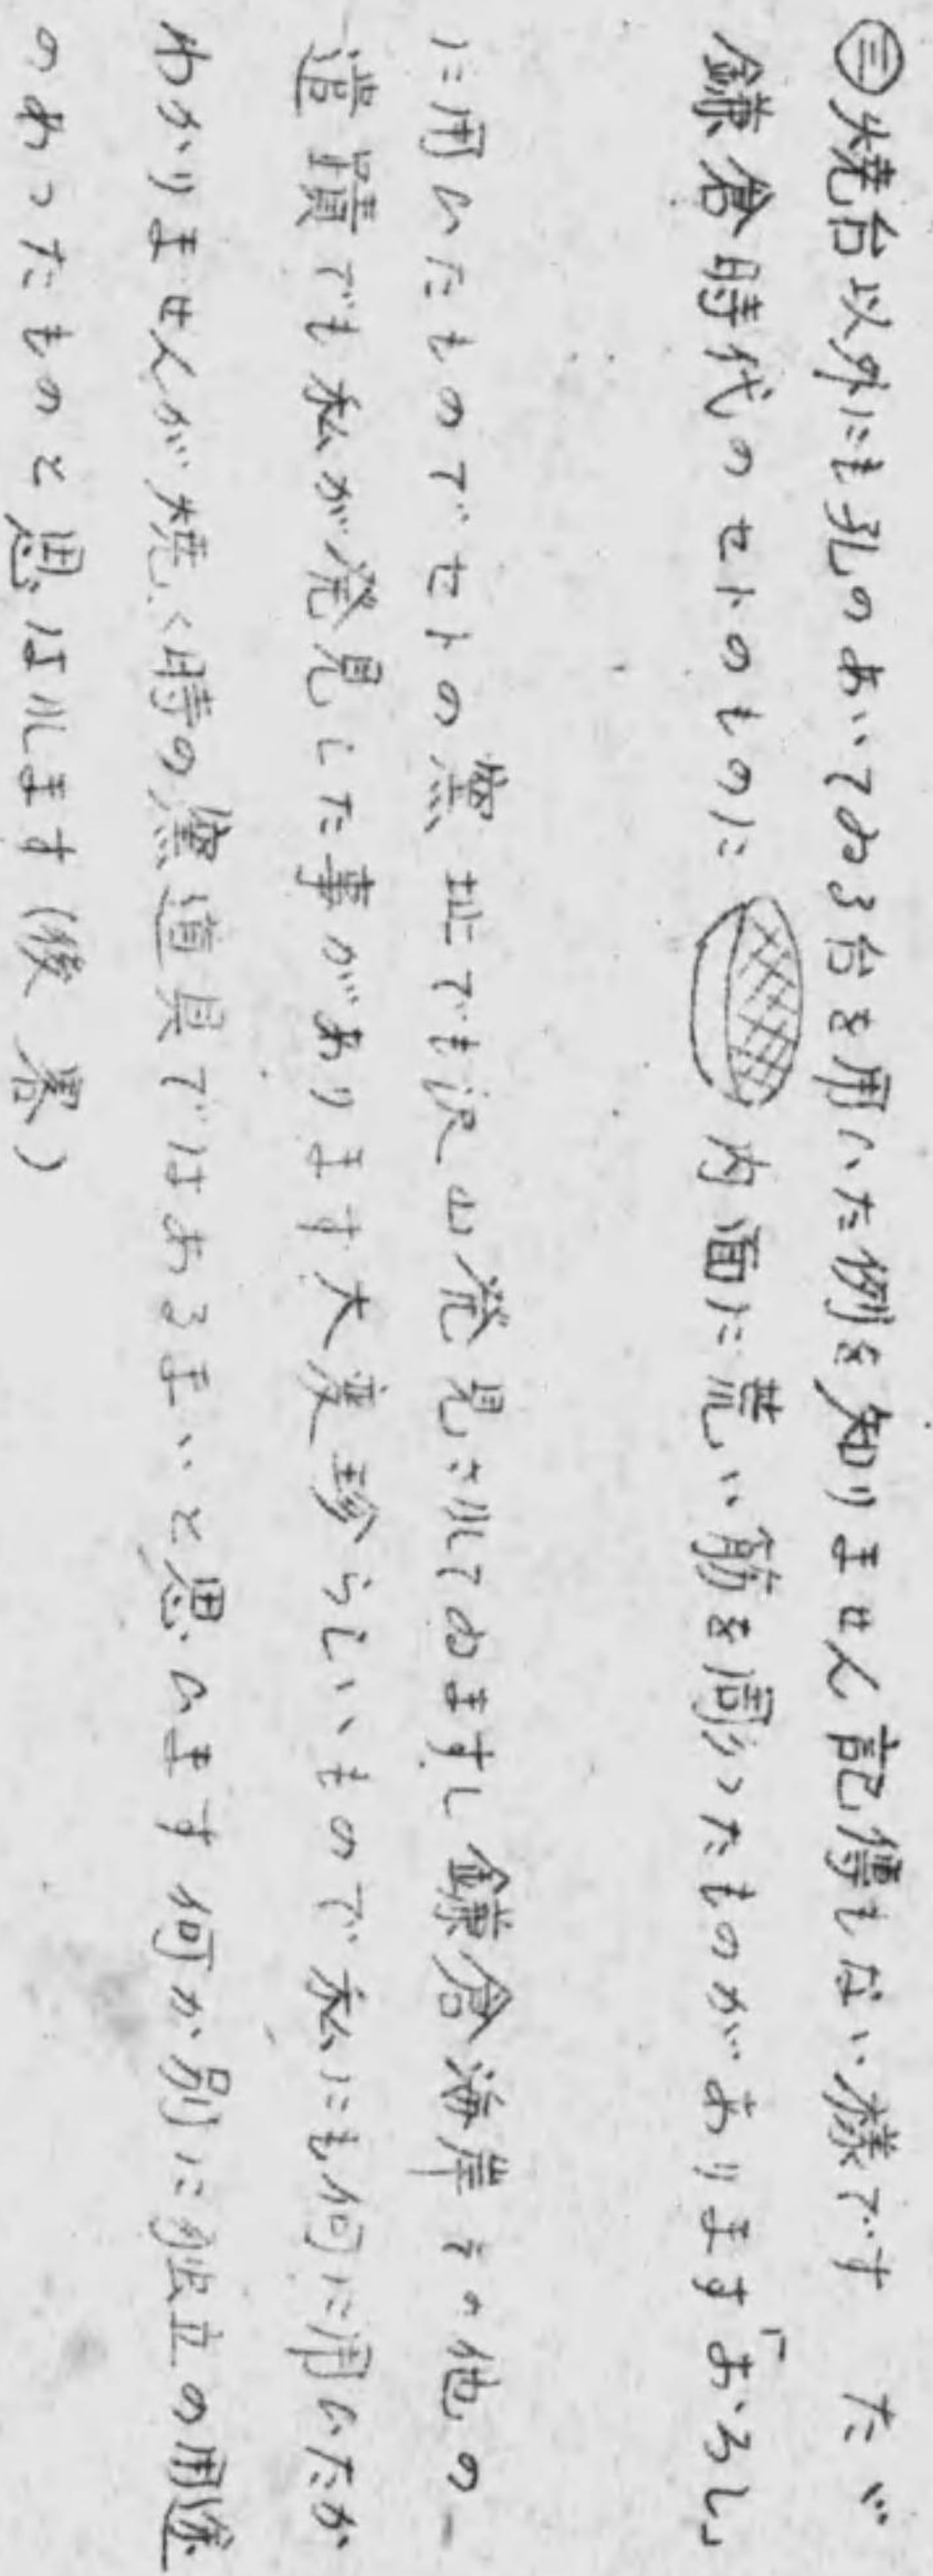 ㊂焼台以外にも孔のあいてゐる台を用ひた例を知りません記憶もない様です たゞ
鎌倉時代のセトのものに 内面に荒い筋を彫つたものがあります「おろし」
に用ひたものでセトの窯址でも沢山発見されてゐますし鎌倉海岸その他の
遺蹟でも私が発見した事があります大変珍らしいもので私にも何に用ひたか
わかりませんが焼く時の窯道具ではあるまいと思ひます何か別に独立の用途
のあつたものと思はれます(後畧)